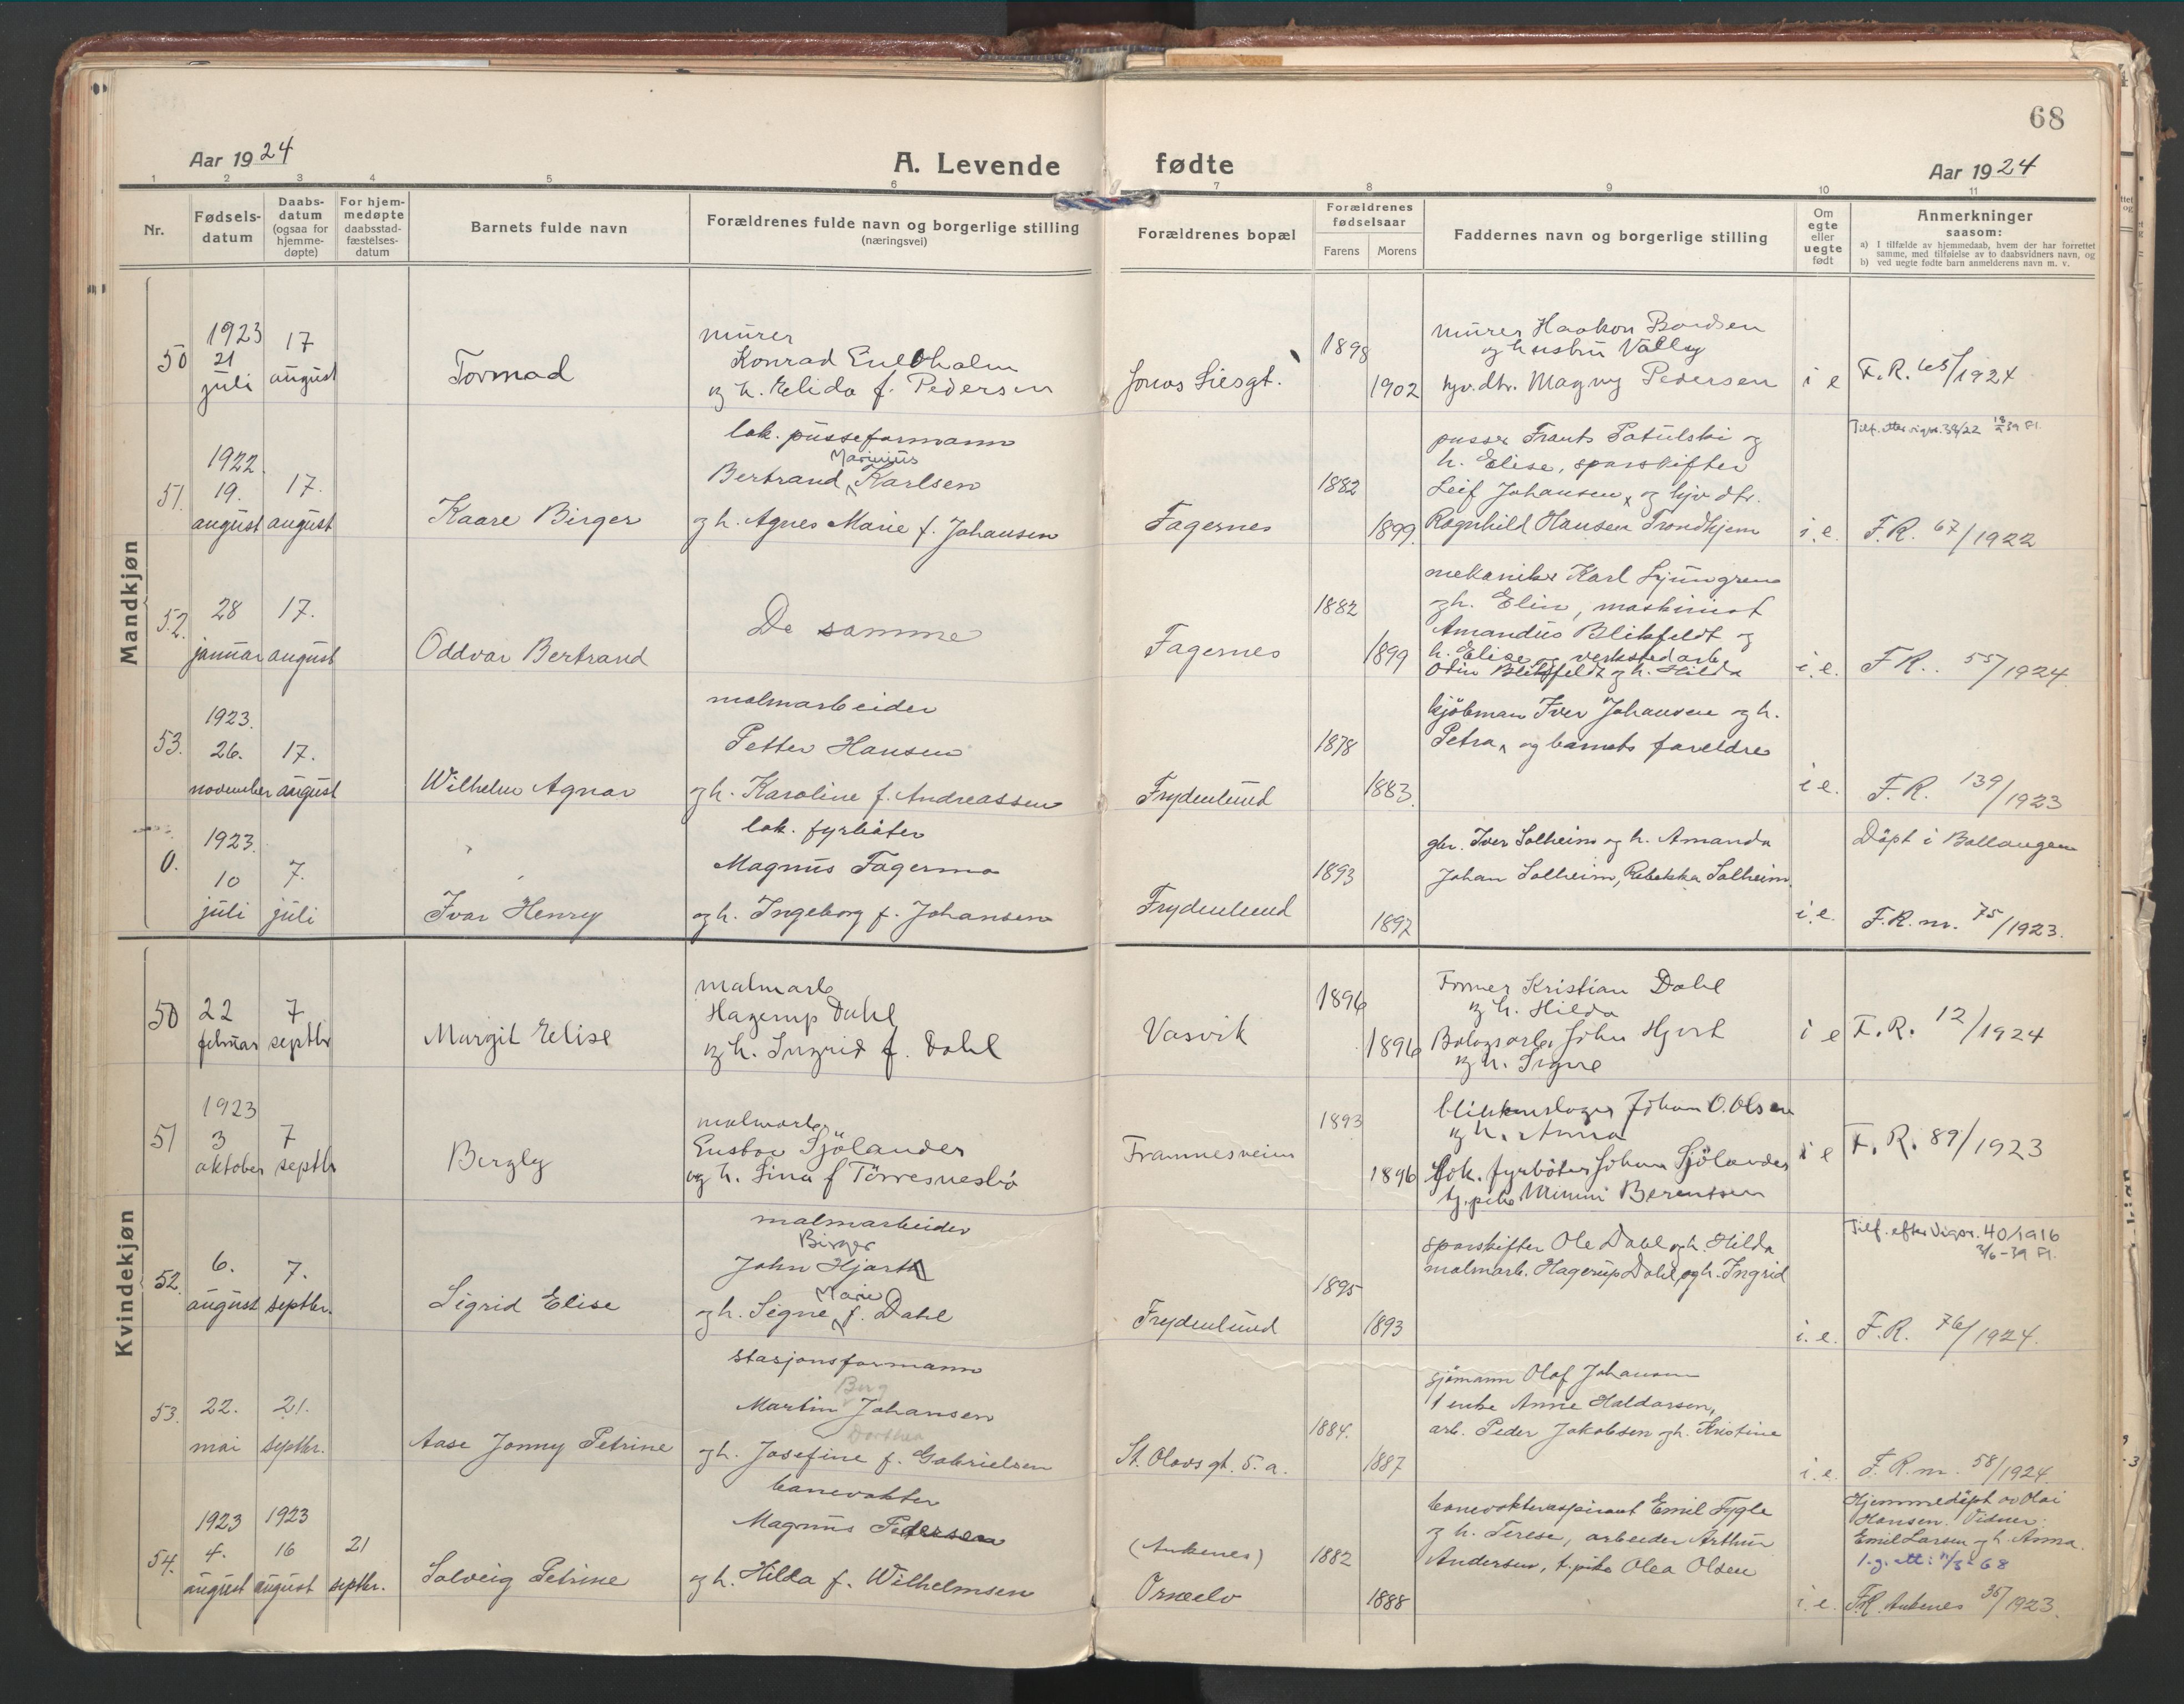 68
Aar 1924
A. Levende fødte
Aar 1924
1 2 3 4 5 6 7 8 9 10 11
Nr.
Fødsels-
datum
Daabs-
datum
(ogsaa for
hjemme-
døpte)
For hjem-
medøpte
daabsstad-
fæstelses-
datum
Barnets fulde navn
Forældrenes fulde navn og borgerlige stilling
(næringsvei)
Forældrenes bopæl
Forældrenes
fødselsaar
Farens Morens
Faddernes navn og borgerlige stilling
Om
egte
eller
uegte
født
Anmerkninger
saasom:
a) I tilfælde av hjemmedaab, hvem der har forrettet
samme, med tilføielse av to daabsvidners navn, og
b) ved uegte fødte barn anmelderens navn m. v.
Mandkjøn
50
1923
21
juli
17
august
Tormod
murer
Konrad
og h. Elida f. Pedersen
Jonas Liesgt.
1898
1902
murer Haakon
og hustru Valby
hjv. dtr. Magny Pedersen
i e
F.R. 65/1924
51.
1922.
19.
august
17.
august
Kaare Birger
lok. pusseformann
Marinius
Bertrand Karlsen
og h. Agnes Marie f. Johansen
Fagernes
1882
1899.
pusser Frants Patulski og
h. Elise, sporskifter
Leif Johansen og hjv dtr.
Ragnhild Hansen Trondhjem
i. e.
Tilf. etter vigsr. 38/22
F.R. 67/1922
52.
28
januar
17.
august
Oddvar Bertrand
De samme
Fagernes
1882
1899
mekaniker Karl Ljungren
og h. Elin, maskinist
Amandus Blikfeldt og
h. Elise og verkstedarb.
Odin Blikfeldt og h. Hilda
i. e.
F.R. 55/1924.
53.
1923.
26.
november
17.
august
Wilhelm Agnar
malmarbeider
Petter Hansen
og h. Karoline f. Andreassen
Frydenlund
1878
1883.
kjöbman Iver Johansen og h.
Petra, og barnets foreldre
i e.
F.R. 139/1923
0.
1923.
10
juli
7.
juli
Ivar Henry
lok. fyrbøter
Magnus Fagermo
og h. Ingeborg f. Johansen
Frydenlund
1893
1897
gbr. Iver Solheim og h. Amanda
Johan Solheim, Rebekka Solheim.
i. e.
Döpt i Ballangen
F.R. nr. 75/1923.
Kvindekjøn
50
22
februar
7
septbr
Margit Elise
malmarb
Hagerup Dahl
og h. Ingrid f. Dahl
Vasvik
1896
1896
Former Kristian Dahl
og h. Hilda
John Hjort
og h. Signe
i e
F.R. 12/1924
51
1923
3
oktober
7
septbr
Bergly
malmarb
Gustav Sjölander
og h. Lina f Törresnesbö
Framnesveien
1893
1896
blikkenslager Johan O. Olsen
og h. Anna
lok. fyrböter Johan Sjölander
tj. pike Mimmi Berentsen
i e
F.R. 89/1923
52.
6.
august
7.
septbr.
Sigrid Elise
malmarbeider
Birger
John Hjort
Marie
og h. Signe f. Dahl
Frydenlund
1895
1893
sporskifter Ole Dahl og h. Hilda
malmarb. Hagerup Dahl og h. Ingrid
i. e.
Tilf. efter Vigsr. 40/1916
3/6-39 Fl.
F.R. 76/1924.
53.
22.
mai
21.
septbr.
Aase Jonny Petrine
stasjonsformann
Berg
Martin Johansen
Dorthea
og h. Josefine f. Gabrielsen
St. Olavs gt. 5. a.
1884.
1887
sjömann Olaf Johansen
enke Anne Haldorsen,
arb. Peder Jakobsen og h. Kristine
i. e.
F.R. nr. 58/1924.
54.
1923
4.
august
1923
16
august
21
septbr.
Solveig Petrine
banevokter
Magnus Pedersen
og h. Hilda f. Wilhelmsen
(Ankenes)
Orneelv
1882
1888
banevokteraspirant Emil Fygle
og h. Terese, arbeider Arthur
Andersen, t. pike Olea Olsen
i. e.
Hjemmedöpt av Olai
Hansen. Vidner:
Emil Larsen og h. Anna.
1.g. att: 11/3-68
F.R. Ankenes 35/1923.